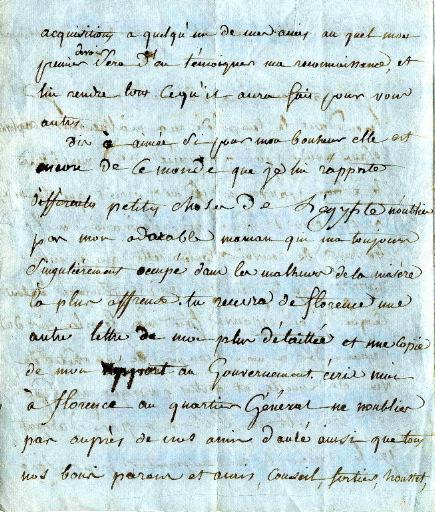 acquisitions a quelqu'un de mes amis au quel mon
premier devoir sera d'en témoigner ma reconnaissance, et
lui rendre tout ce qu'il aura fait pour vous
autres.
Dis à aimée Si pour mon bonheur elle est
encore de ce monde que je lui rapporte
differentes petites choses de l'égypte noublier
pas mon adorable maman qui ma toujours
Singulièrement occupé dans les malheurs de la misère
la plus affreuse. tu recevra de florence une
autre lettre de moi plus détaillée et une copie
de mon rapport au Gouvernement. écris moi
à florence au quartier Général ne noublier
pas auprès de nos amis d'aulé ainsi que tous
nos bons parens et amis, Conseil,